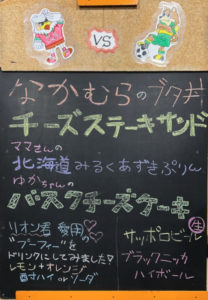 VS
なかむらのブタ丼
チーズステーキサンド
ママさんの
北海道みるくあずきぷりん
ゆかちゃんの
バスクチーズケーキ
リオン君 愛用の
"プーフィー"を
ドリンクにしてみました?
レモン+オレンジ
酎ハイ or ソーダ
生
サッポロビール
ブラックニッカ
ハイボール